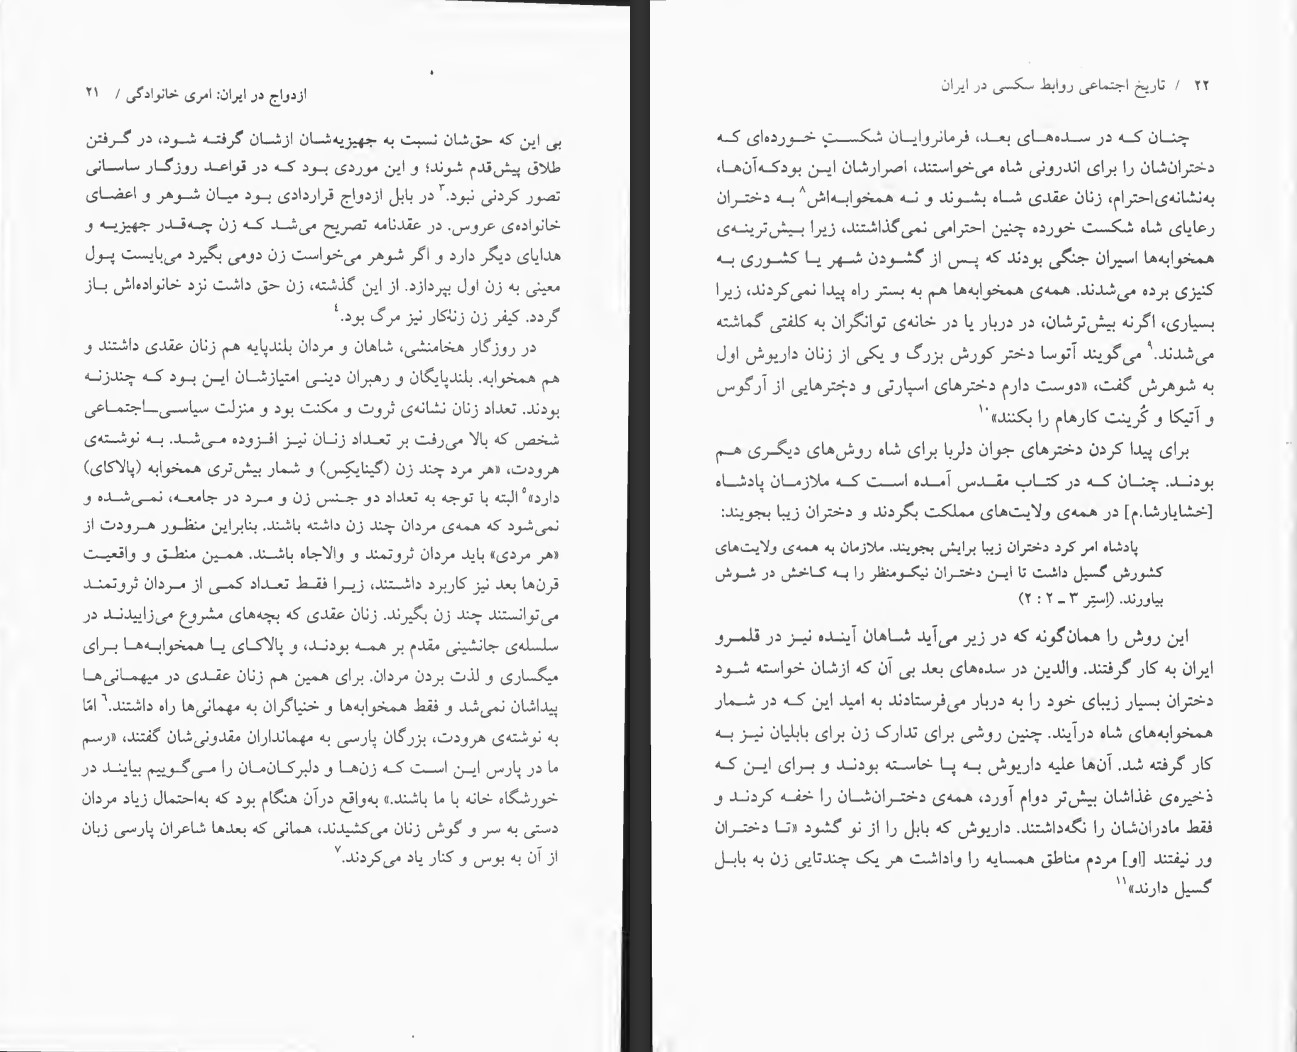 ازدواج در ایران: امری خانوادگی / ۲۱
بی این که حق‌شان نسبت به جهیزیه‌شان ازشان گرفته شود، در گرفتن
طلاق پیش‌قدم شوند؛ و این موردی بود که در قواعد روزگار ساسانی
تصور کردنی نبود.۳ در بابل ازدواج قراردادی بود میان شوهر و اعضای
خانواده‌ی عروس. در عقدنامه تصریح می‌شد که زن چه‌قدر جهیزیه و
هدایای دیگر دارد و اگر شوهر می‌خواست زن دومی بگیرد می‌بایست پول
معینی به زن اول بپردازد. از این گذشته، زن حق داشت نزد خانواده‌اش باز
گردد. کیفر زن زناکار نیز مرگ بود.۴
در روزگار هخامنشی، شاهان و مردان بلندپایه هم زنان عقدی داشتند و
هم همخوابه. بلندپایگان و رهبران دینی امتیازشان این بود که چندزنه
بودند. تعداد زنان نشانه‌ی ثروت و مکنت بود و منزلت سیاسی–اجتماعی
شخص که بالا می‌رفت بر تعداد زنان نیز افزوده می‌شد. به نوشته‌ی
هرودت، «هر مرد چند زن (گینایکِس) و شمار بیش‌تری همخوابه (پالاکای)
دارد»۵ البته با توجه به تعداد دو جنس زن و مرد در جامعه، نمی‌شده و
نمی‌شود که همه‌ی مردان چند زن داشته باشند. بنابراین منظور هرودت از
«هر مردی» باید مردان ثروتمند و والاجاه باشد. همین منطق و واقعیت
قرن‌ها بعد نیز کاربرد داشتند، زیرا فقط تعداد کمی از مردان ثروتمند
می‌توانستند چند زن بگیرند. زنان عقدی که بچه‌های مشروع می‌زاییدند در
سلسله‌ی جانشینی مقدم بر همه بودند، و پالاکای یا همخوابه‌ها برای
میگساری و لذت بردن مردان. برای همین هم زنان عقدی در میهمانی‌ها
پیداشان نمی‌شد و فقط همخوابه‌ها و خنیاگران به مهمانی‌ها راه داشتند.۶ امّا
به نوشته‌ی هرودت، بزرگان پارسی به مهمانداران مقدونی‌شان گفتند، «رسم
ما در پارس این است که زن‌ها و دلبرکان‌مان را می‌گوییم بیایند در
خورشگاه خانه با ما باشند.» به‌واقع درآن هنگام بود که به‌احتمال زیاد مردان
دستی به سر و گوش زنان می‌کشیدند، همانی که بعدها شاعران پارسی زبان
از آن به بوس و کنار یاد می‌کردند.۷
۲۲ / تاریخ اجتماعی روابط سکسی در ایران
چنان که در سده‌های بعد، فرمانروایان شکستِ خورده‌ای که
دختران‌شان را برای اندرونی شاه می‌خواستند، اصرارشان این بودکه‌آن‌ها،
به‌نشانه‌ی‌احترام، زنان عقدی شاه بشوند و نه همخوابه‌اش۸ به دختران
رعایای شاه شکست خورده چنین احترامی نمی‌گذاشتند، زیرا بیش‌ترینه‌ی
همخوابه‌ها اسیران جنگی بودند که پس از گشودن شهر یا کشوری به
کنیزی برده می‌شدند. همه‌ی همخوابه‌ها هم به بستر راه پیدا نمی‌کردند، زیرا
بسیاری، اگرنه بیش‌ترشان، در دربار یا در خانه‌ی توانگران به کلفتی گماشته
می‌شدند.۹ می‌گویند آتوسا دختر کورش بزرگ و یکی از زنان داریوش اول
به شوهرش گفت، «دوست دارم دخترهای اسپارتی و دخترهایی از آرگوس
و آتیکا و کُرینت کارهام را بکنند»۱۰
برای پیدا کردن دخترهای جوان دلربا برای شاه روش‌های دیگری هم
بودند. چنان که در کتاب مقدس آمده است که ملازمان پادشاه
[خشایارشا.م] در همه‌ی ولایت‌های مملکت بگردند و دختران زیبا بجویند:
پادشاه امر کرد دختران زیبا برایش بجویند. ملازمان به همه‌ی ولایت‌های
کشورش گسیل داشت تا این دختران نیکومنظر را به کاخش در شوش
بیاورند. (اِستِر ۳ – ۲ : ۲)
این روش را همان‌گونه که در زیر می‌آید شاهان آینده نیز در قلمرو
ایران به کار گرفتند. والدین در سده‌های بعد بی آن که ازشان خواسته شود
دختران بسیار زیبای خود را به دربار می‌فرستادند به امید این که در شمار
همخوابه‌های شاه درآیند. چنین روشی برای تدارک زن برای بابلیان نیز به
کار گرفته شد. آن‌ها علیه داریوش به پا خاسته بودند و برای این که
ذخیره‌ی غذاشان بیش‌تر دوام آورد، همه‌ی دختران‌شان را خفه کردند و
فقط مادران‌شان را نگه‌داشتند. داریوش که بابل را از نو گشود «تا دختران
ور نیفتند [او] مردم مناطق همسایه را واداشت هر یک چندتایی زن به بابل
گسیل دارند»۱۱